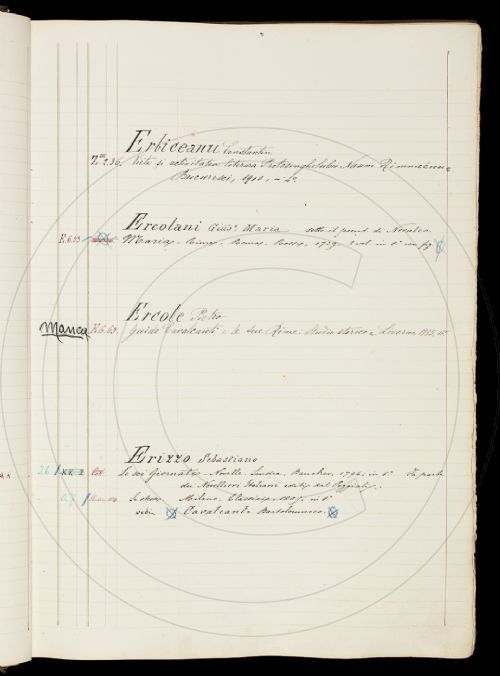 Erbiceanu Constantin
Z.III 2.36. Viata si activitatea literara Protosinghelului Naum Râmniceanu
Bucuresci, 1900, in 4°.
Ercolani Gius.e Maria sotto il pseud. di Neralco
E.6.33 Maria. Rime. Roma. Rossi, 1759. 2 vol. in 8° con fig.
Ercole Pietro
Manca E.6.69. Guido Cavalcanti e le sue Rime. Studio storico. Livorno 1885, 8°
Erizzo Sebastiano
26 Le sei Giornate. Novelle. Londra. Bancker, 1794. in 8° Fa parte
dei Novellieri Italiani editi dal Poggiali.
Le stesse. Milano. Classici, in 8°
vedi Cavalcanti Bartolommeo.